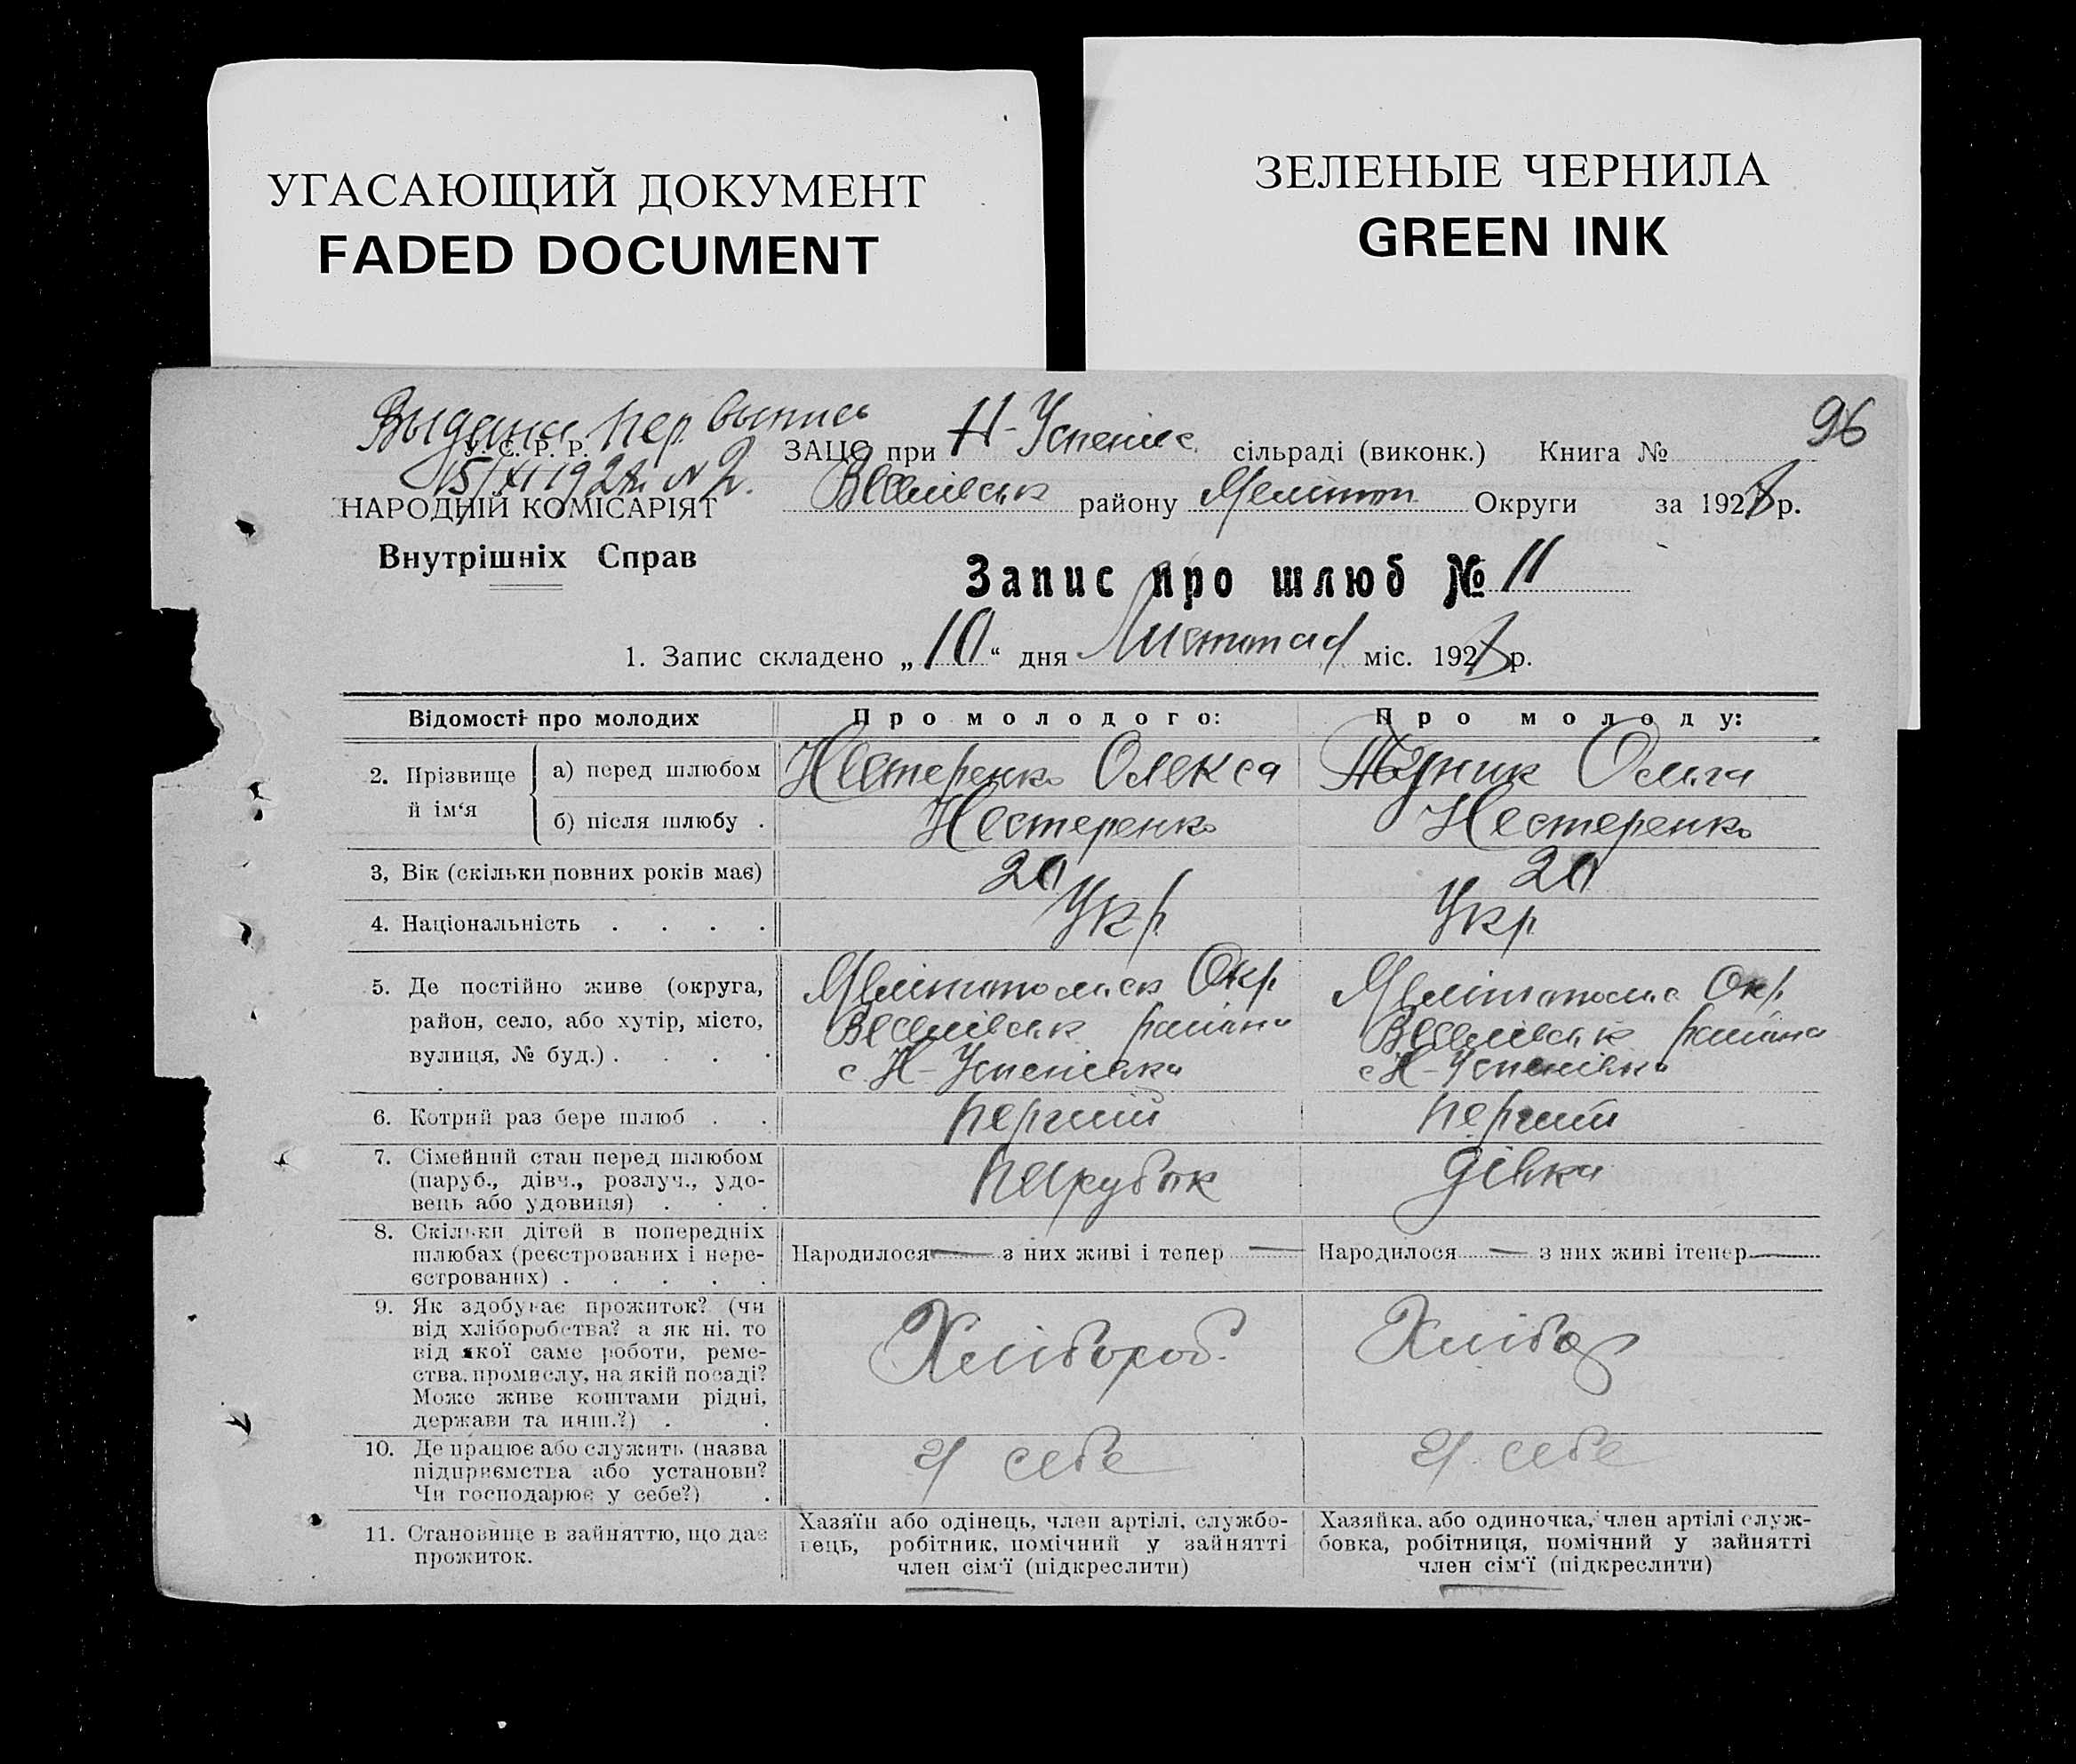 УГАСАЮЩИЙ ДОКУМЕНТ
FADED DOCUMENT
ЗЕЛЕНЫЕ ЧЕРНИЛА
GREEN INK
96
Выдана пер. выпись
15/XI 192 № 2.
У. С. Р. Р.
НАРОДНІЙ КОМІСАРІЯТ
Внутрішніх Справ
ЗАЦС при Н-Успенівс сільраді (виконк.) Книга №
Веселівськ району Меліт Округи за 192 р.
Запис про шлюб № 11
1. Запис складено „10“ дня Листопад міс. 192 р.
Відомості про молодих
Про молодого:
Про молоду:
2. Прізвище й ім‘я
а) перед шлюбом
Нестеренко Олекса
Ольга
б) після шлюбу .
Нестеренко
Нестеренко
3, Вік (скільки повних років має)
20
20
4. Національність . . . .
Укр
Укр
5. Де постійно живе (округа,
район, село, або хутір, місто,
вулиця, № буд.) . . . .
Мелітопольськ Окр
Веселівськ района
с. Н-Успенівка
Мелітопольс Окр
Веселівськ района
с Н-Успенівка
6. Котрий раз бере шлюб . .
перший
перший
7. Сімейний стан перед шлюбом
(паруб., дівч., розлуч., удо-
вець або удовиця) . . .
парубок
дівка
8. Скільки дітей в попередніх
шлюбах (реєстрованих і нере-
єстрованих) . . . . .
Народилося — з них живі і тепер —
Народилося — з них живі ітепер —
9. Як здобуває прожиток? (чи
від хліборобства? а як ні, то
від якої саме роботи, реме-
ства, промислу, на якій посаді?
Може живе коштами рідні,
держави та инш.?) . .
Хлібороб.
Хлібор
10. Де працює або служить (назва
підприємства або установи?
Чи господарює у себе?) .
У себе
У себе
11. Становище в зайняттю, що дає
прожиток.
Хазяїн або одінець, член артілі, службо-
вець, робітник, помічний у зайнятті
член сім‘ї (підкреслити)
Хазяйка, або одиночка, член артілі служ-
бовка, робітниця, помічний у зайнятті
член сім‘ї (підкреслити)